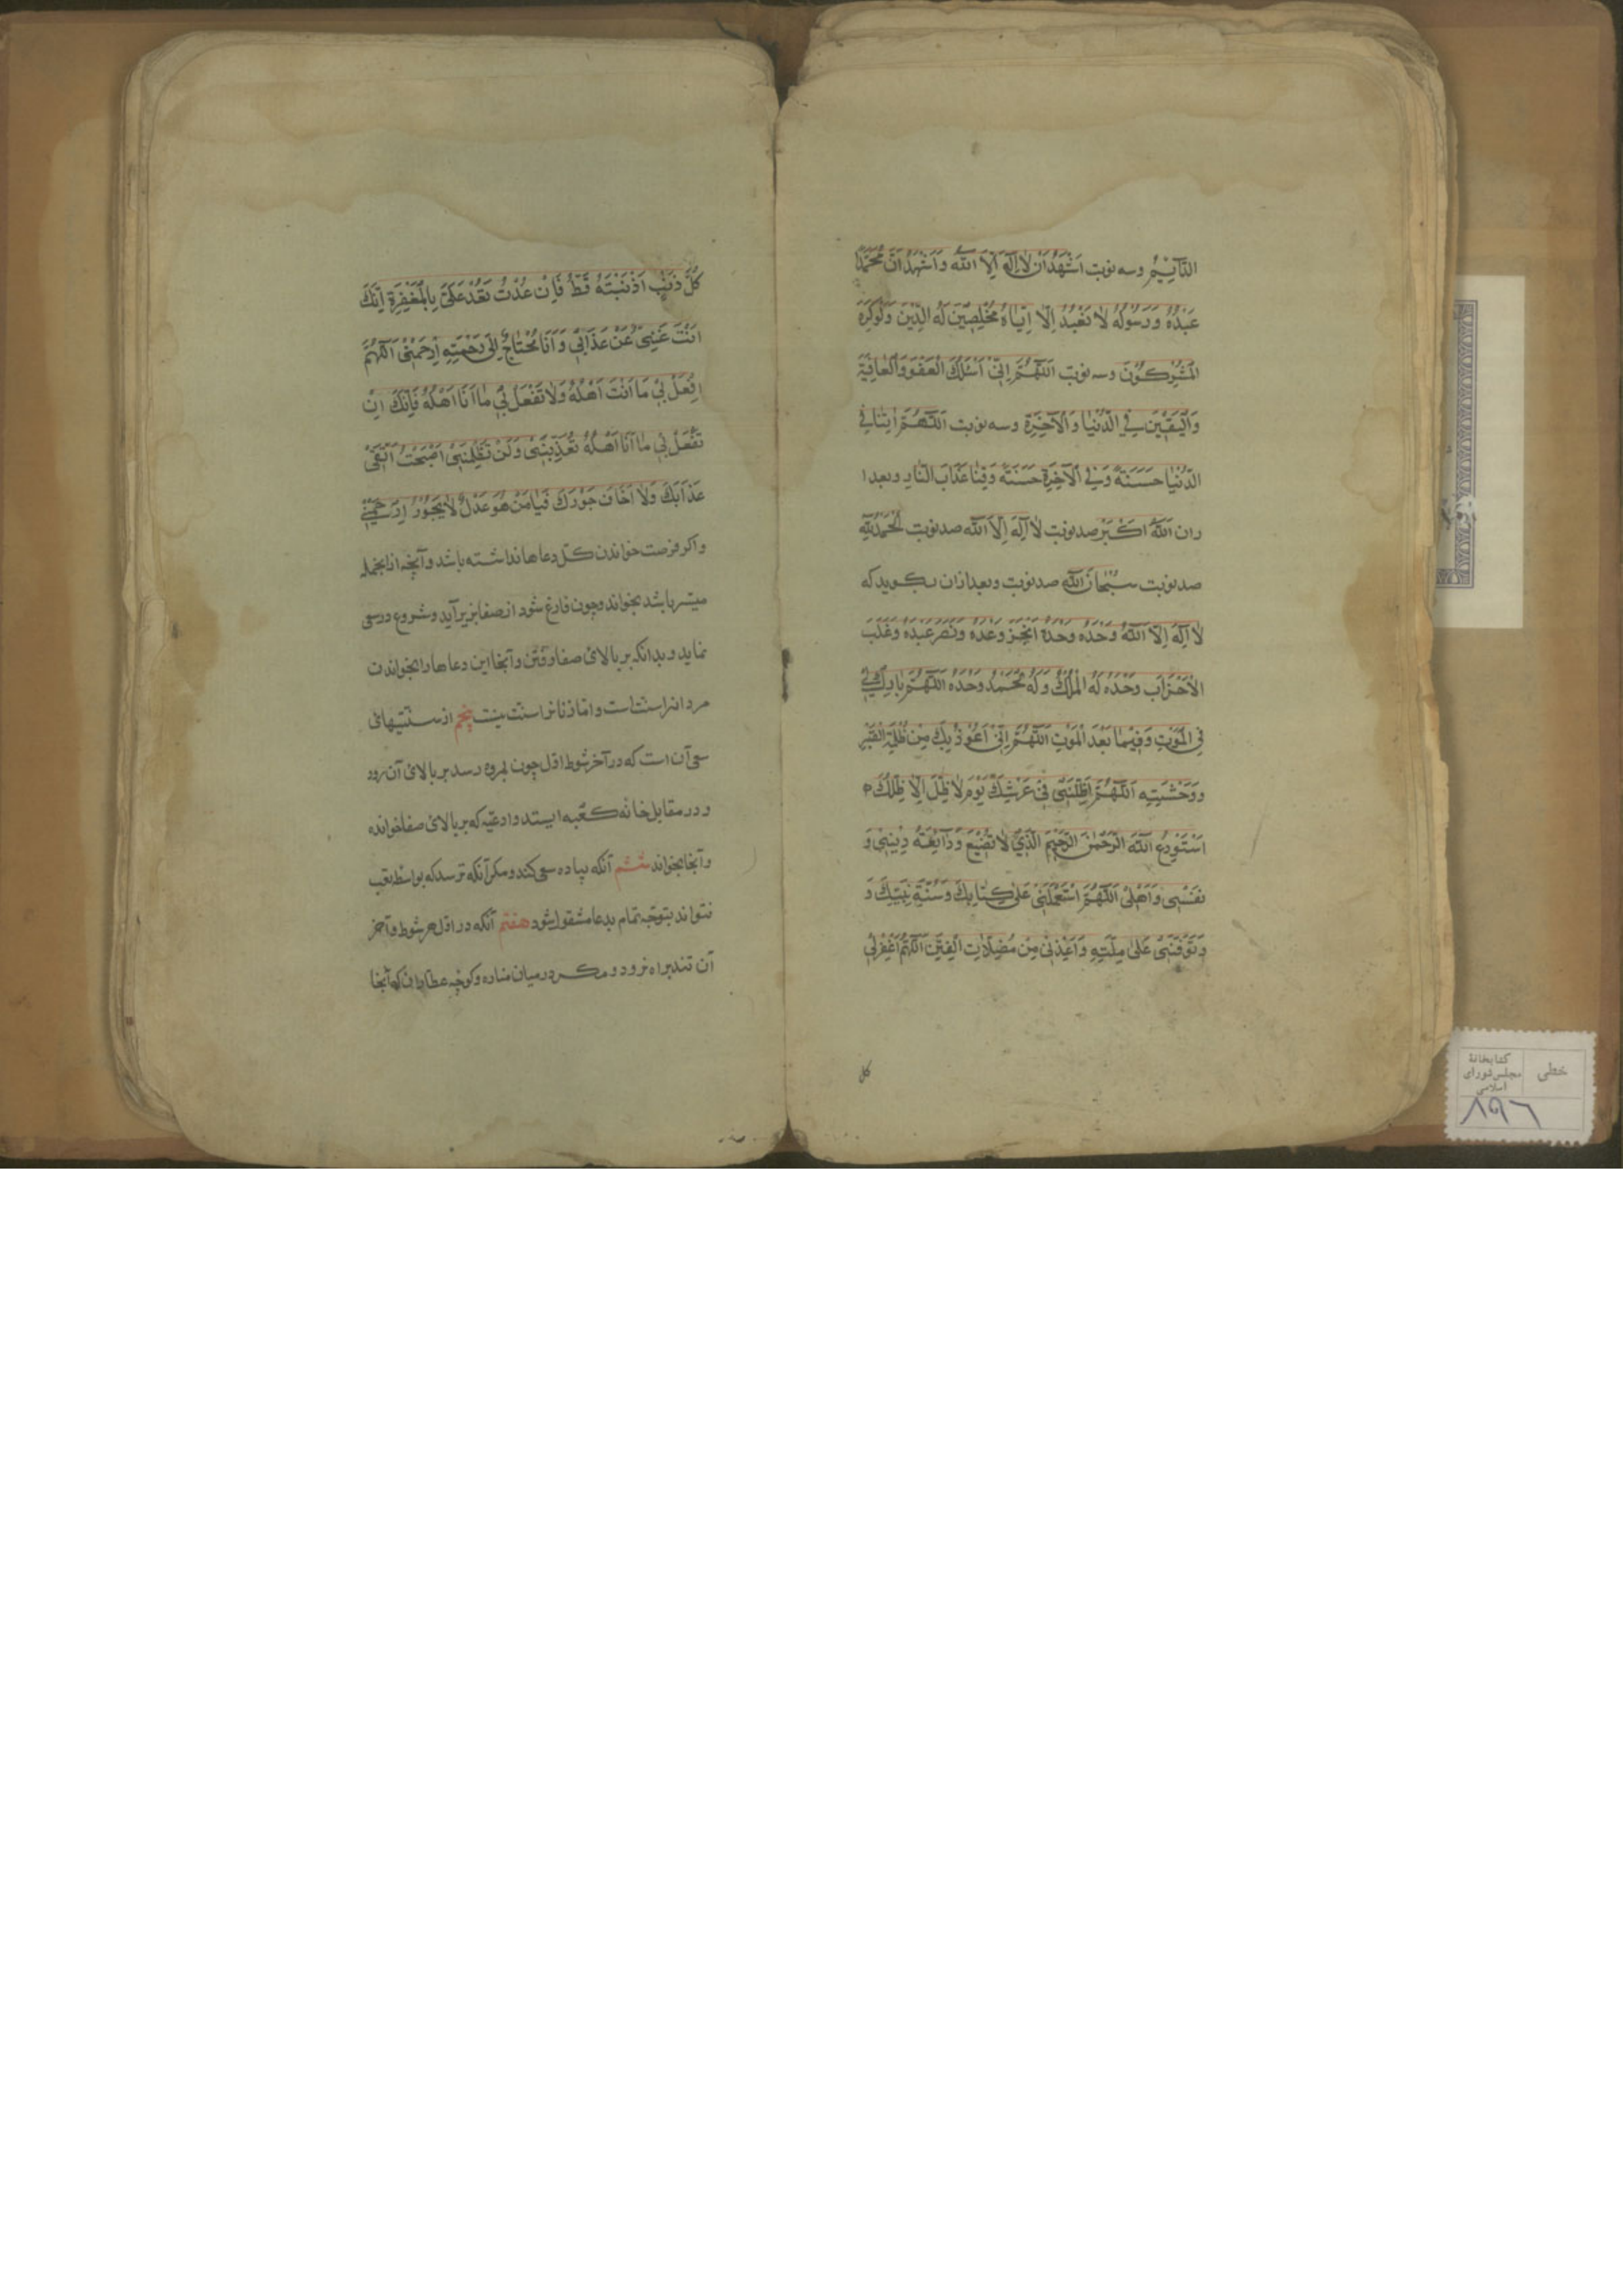 الدَّآئِمُ وسه نوبت اَشْهَدُ اَنْ لٰا اِلٰهَ اِلَّا اللّٰه وَاَشْهَدُ اَنَّ مُحَمَّدًا
عَبْدُهُ وَرَسُولُهُ لٰا نَعْبُدُ اِلّٰا اِيّٰاهُ مُخْلِصِيْنَ لَهُ الدِّيْنَ وَلَوْكَرِهَ
الْمُشْرِكُوْنَ وسه نوبت اَللّٰهُمَّ اِنِّىْ اَسْئَلُكَ الْعَفْوَ وَالْعٰافِيَةَ
وَالْيَقِيْنَ فِي الدُّنْيٰا وَالْاٰخِرَةِ وسه نوبت اَللّٰهُمَّ اٰتِنٰا فِي
الدُّنْيٰا حَسَنَةً وَفِي الْاٰخِرَةِ حَسَنَةً وَقِنٰا عَذٰابَ النّٰارِ وبعد ا
زان اَللّٰهُ اَكْبَرْ صد نوبت لٰا اِلٰهَ اِلَّا اللّٰه صد نوبت اَلْحَمْدُ لِلّٰهِ
صد نوبت سُبْحٰانَ اللّٰهِ صد نوبت وبعد ازان بكويد كه
لٰا اِلٰهَ اِلَّا اللّٰهُ وَحْدَهُ وَحْدَهُ اَنْجَزَ وَعْدَهُ وَنَصَرَ عَبْدَهُ وَغَلَبَ
الْاَحْزٰابَ وَحْدَهُ لَهُ الْمُلْكُ وَلَهُ الْحَمْدُ وَحْدَهُ اَللّٰهُمَّ بٰارِكْ لِيْ
فِي الْمَوْتِ وَفِيْمٰا بَعْدَ الْمَوْتِ اَللّٰهُمَّ اِنِّىْ اَعُوْذُ بِكَ مِنْ ظُلْمَةِ الْقَبْرِ
وَوَحْشَتِهِ اَللّٰهُمَّ اَظِلَّنِىْ فِىْ عَرْشِكَ يَوْمَ لٰا ظِلَّ اِلّٰا ظِلُّكَ
اَسْتَوْدِعُ اللّٰهَ الرَّحْمٰنَ الرَّحِيْمَ الَّذِىْ لٰا تَضِيْعُ وَدٰآئِعُهُ دِيْنِىْ وَ
نَفْسِىْ وَاَهْلِىْ اَللّٰهُمَّ اسْتَعْمِلْنِىْ عَلٰى كِتٰابِكَ وَسُنَّةِ نَبِيِّكَ وَ
وَتَوَفَّنِىْ عَلٰى مِلَّتِهِ وَاَعِذْنِىْ مِنْ مُضِلّٰاتِ الْفِتَنِ اَللّٰهُمَّ اغْفِرْلِىْ
كل
كُلَّ ذَنْبٍ اَذْنَبْتُهُ قَطُّ فَاِنْ عُدْتُ فَعُدْ عَلَىَّ بِالْمَغْفِرَةِ اِنَّكَ
اَنْتَ غَنِىٌّ عَنْ عَذٰابِىْ وَاَنَا مُحْتٰاجٌ اِلٰى رَحْمَتِهِ اِرْحَمْنِىْ اَللّٰهُمَّ
افْعَلْ بِىْ مٰا اَنْتَ اَهْلُهُ وَلٰا تَفْعَلْ بِىْ مٰا اَنَا اَهْلُهُ فَاِنَّكَ اِنْ
تَفْعَلْ بِىْ مٰا اَنَا اَهْلُهُ تُعَذِّبْنِىْ وَلَنْ تَظْلِمَنِىْ اَصْبَحْتُ اَتَّقِىْ
عَذٰابَكَ وَلٰا اَخٰافُ جَوْرَكَ فَيٰا مَنْ هُوَ عَدْلٌ لٰا يَجُوْرُ اِرْحَمْنِيْ
واكر فرصت خواندن كل دعاها نداشته باشد وآنچه ازانجمله
ميسر باشد بخواند وچون فارغ شود از صفا بزير آيد وشروع درسعى
نمايد وبدانكه بر بالائ صفا رفتن وآنجا اين دعاها را بخواندن
مردانرا سنت است واما زنانرا سنت نيست پنجم از سنتيهائ
سعى آن است كه در آخر شوط اول چون بمروه رسد بر بالائ آن رود
ودر مقابل خانه كعبه ايستد وادعيّه كه بر بالائ صفا خوانده
وآنجا بخواند ششم آنكه پياده سعى كند ومكر آنكه ترسد كه بواسطه تعب
نتواند بتوجّه تمام بدعا مشغول شود هفتم آنكه در اول هر شوط وآخر
آن تند براه نرود ومكر در ميان مناره وكوچه عطاران كه آنجا
خطى
كتابخانهٔ
مجلس شوراى
اسلامى
٨٩٦